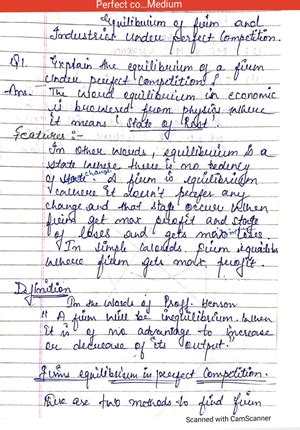 Perfect co...Medium
Equilibrium of firm and
Industries Under Perfect Competition.
Q1. Explain the equilibrium of a firm
Under perfect Competition?
Ans- The word equilibrium in economic
is browered from physics where
It means 'State of Rest'.
Features :-
In other words, equilibrium is a
state where there is no tedency
of state change. A firm is equilibrium
where It doesn't prefer any
change and that state occur when
firm get max profit and stage
of loses and gets max profit loses
In simple words, firm equilibrium
where firm gets max. profit.
Definition
In the words of Proff. Henson
"A firm will be inequilibrium when
It is of no advantage to increase
or decrease of its output."
Firms equilibrium in perfect Competition.
There are two methods to find firm
Scanned with CamScanner